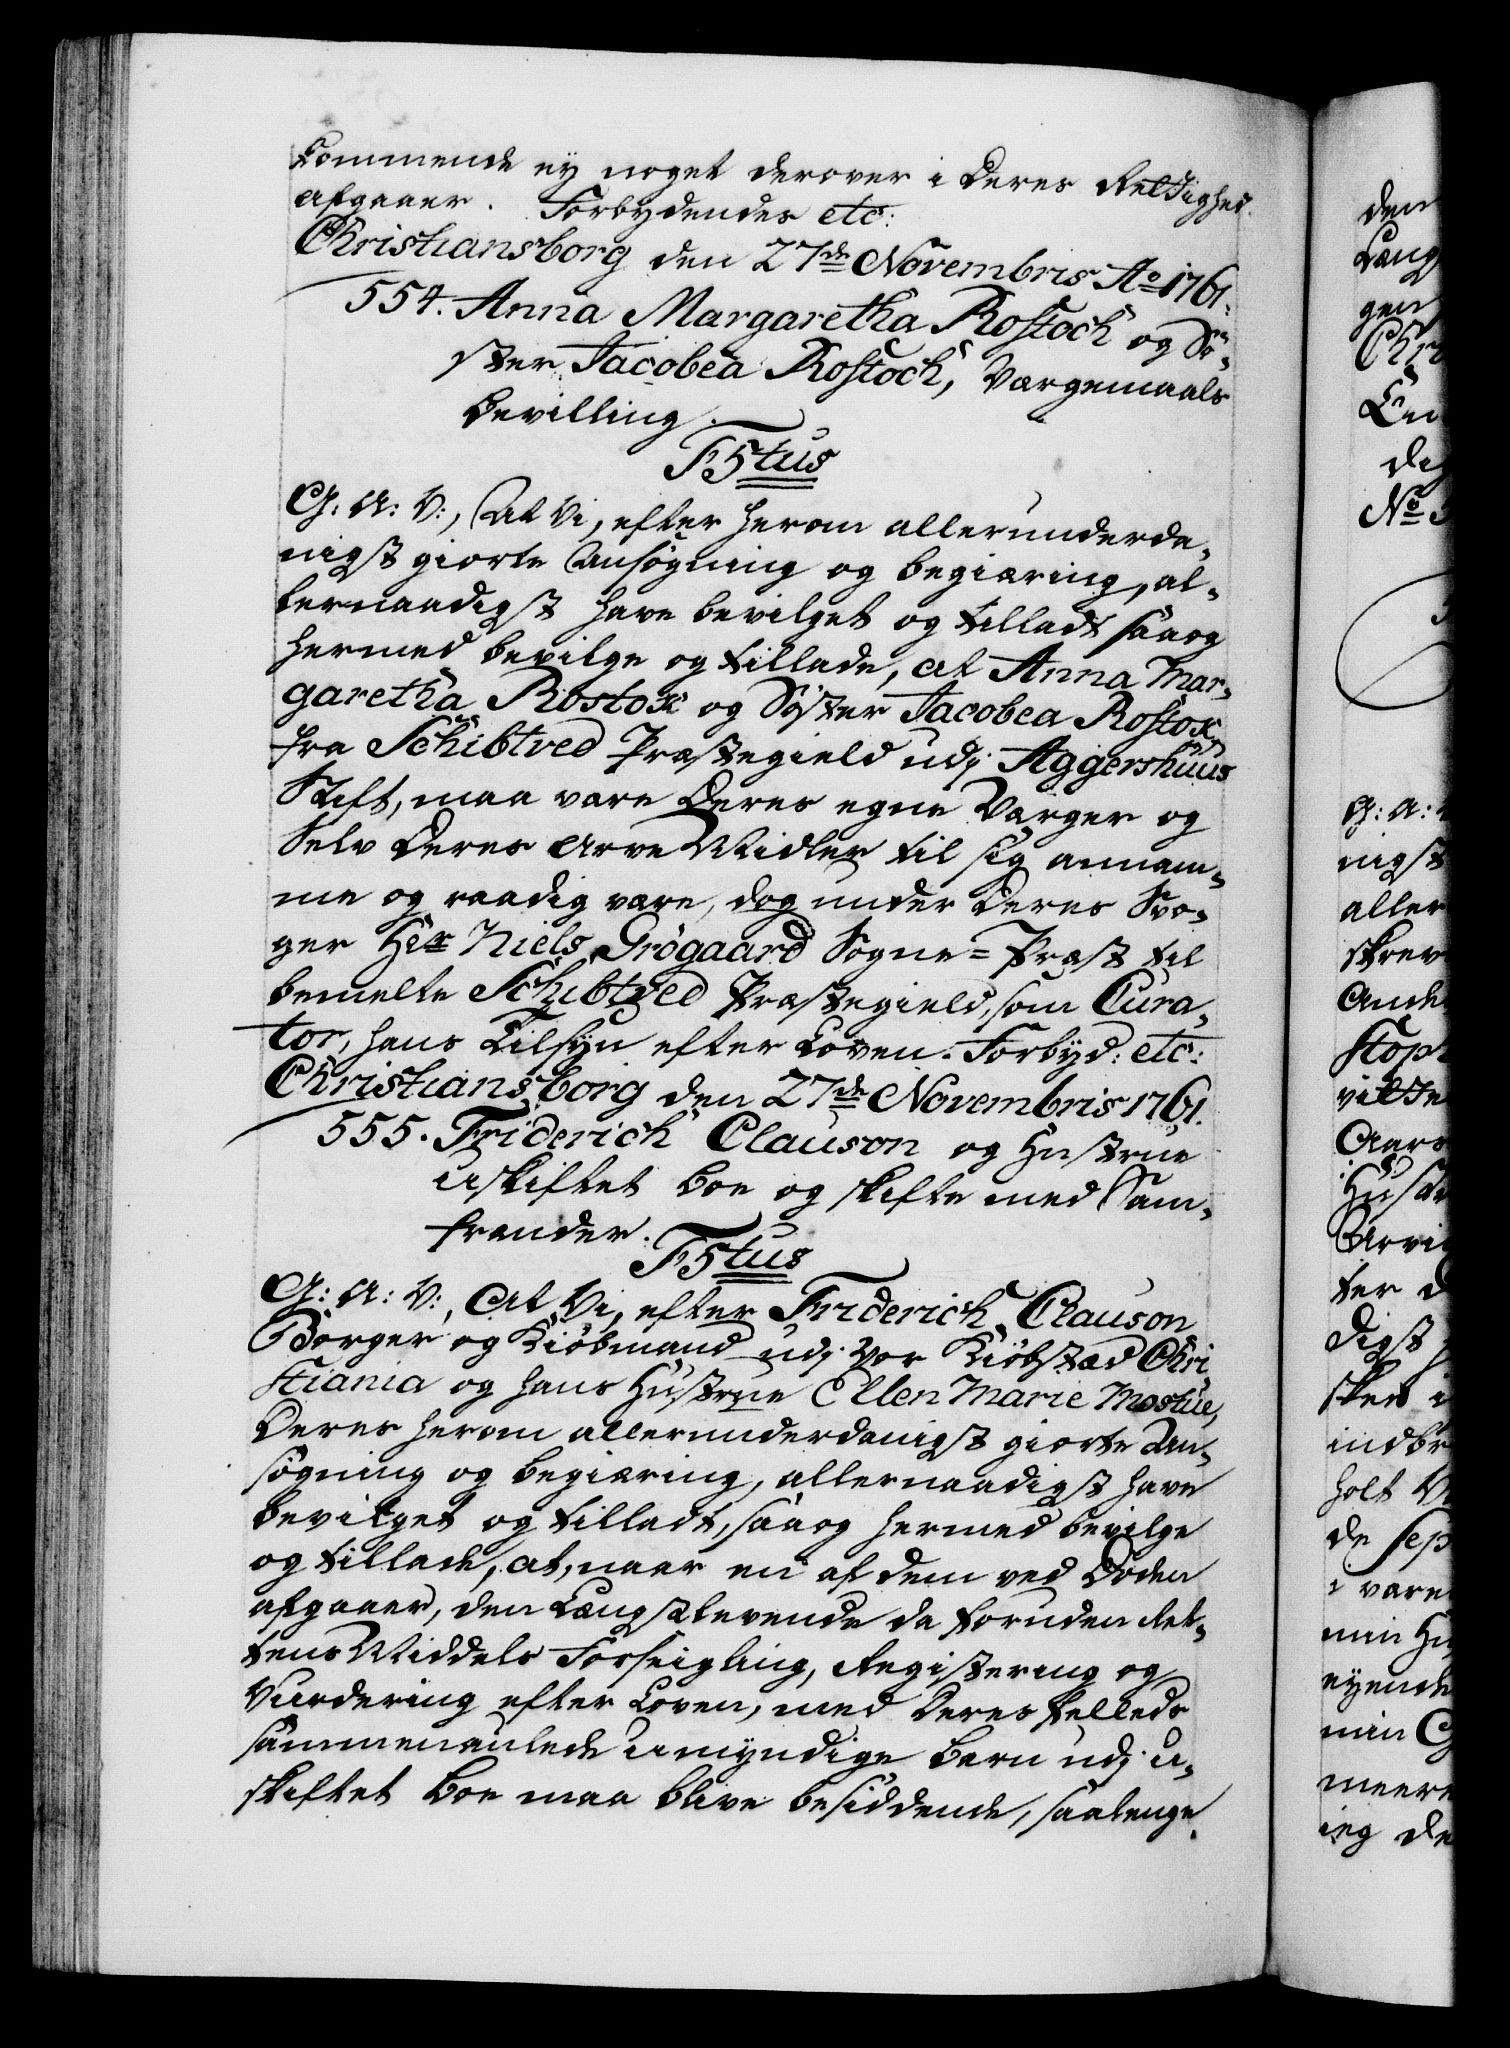 kommende ey noget derover i Deres Rettighed
afgaaer. Forbydendes etc:
Christiansborg den 27de Novembris Ao 1761.
554. Anna Margaretha Rostoch og Sö-
ster Jacobea Rostoch, Værgemaals
Bevilling.
F5tus
G: A: V:, At Vi, efter herom allerunderda-
nigst giorte Ansøgning og begiæring, al-
lernaadigst have bevilget og tilladt saaog
hermed bevilge og tillade, at Anna Mar-
garetha Rostox og Søster Jacobea Rostox
fra Schibtved Præstegield udj Aggershuus
Stift, maa være Deres egne Værger og
Selv Deres Arve Midler til sig annam-
me og raadig være, dog under Deres Svo-
ger Hr Niels Grögaard Sogne-Præst til
bemelte Schibtved Præstegield, som Cura-
tor, hans Tilsyn efter Loven. Forbyd: etc:
Christiansborg den 27de Novembris 1761.
555. Friderich Clauson og Hustrue
uskiftet Boe og skifte med Sam-
frænder.
F5tus
G: A: V:, At Vi, efter Friderich Clauson
Borger og Kiöbmand udj Vor Kiöbstæd Chri-
stiania og hans Hustrue Ellen Marie Mostue,
Deres herom allerunderdanigst giorte An-
søgning og begiæring, allernaadigst have
bevilget og tilladt, saaog hermed bevilge
og tillade, at, naar en af dem ved Døden
afgaaer, den Længstlevende da foruden Ret-
tens Middels Forseigling, Registering og
Vurdering efter Loven, med Deres felleds
sammenavlede umyndige Børn udj u-
skiftet Boe maa blive besiddende, saalenge